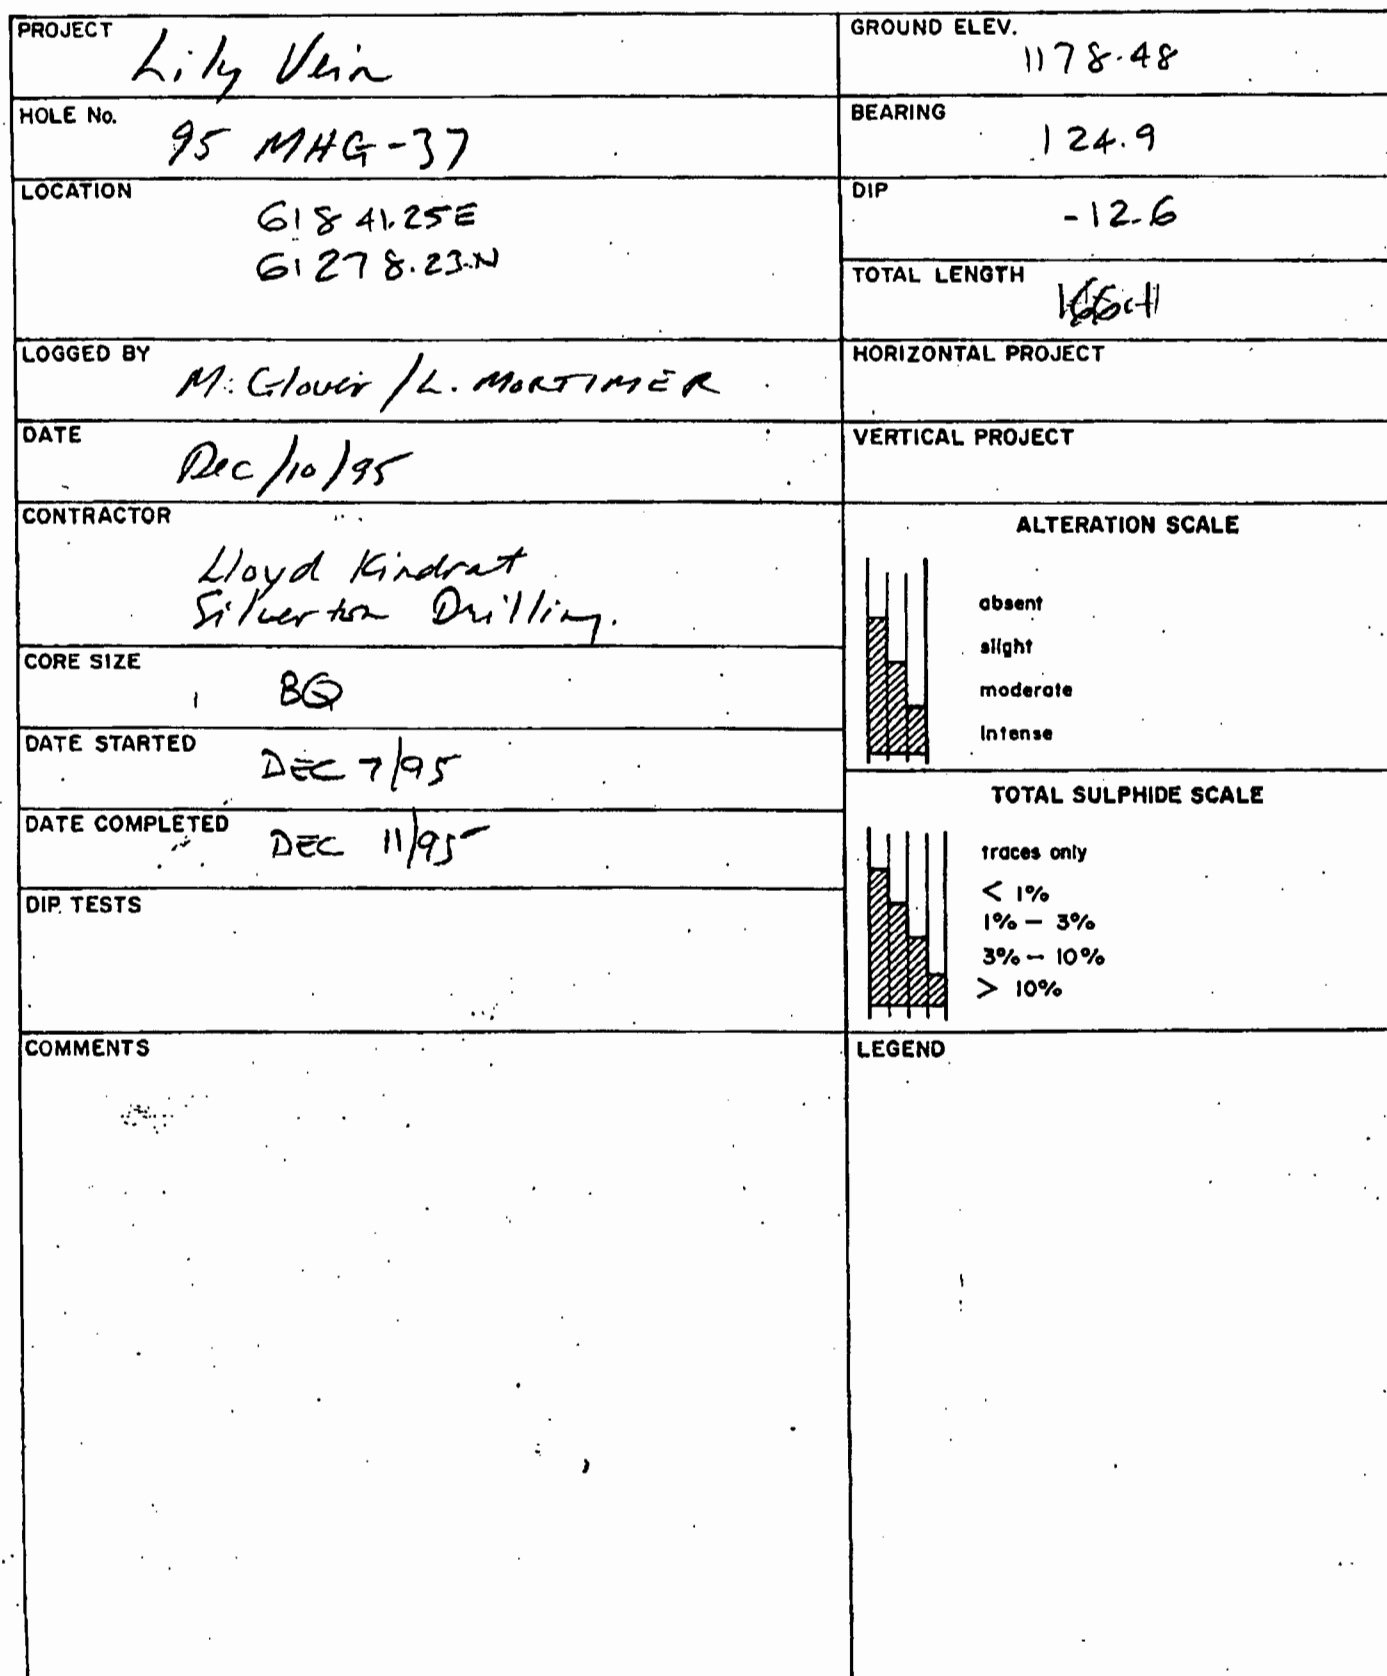 PROJECT
Lily Vein
HOLE No.
95 MHG-37
LOCATION
61841.25E
61278.23N
LOGGED BY
M. Glover / L. MORTIMER
DATE
Dec/10/95
CONTRACTOR
Lloyd Kindrat
Silverton Drilling.
CORE SIZE
BQ
DATE STARTED
DEC 7/95
DATE COMPLETED
DEC 11/95
DIP. TESTS
COMMENTS
GROUND ELEV.
1178.48
BEARING
124.9
DIP
-12.6
TOTAL LENGTH
HORIZONTAL PROJECT
VERTICAL PROJECT
ALTERATION SCALE
absent
slight
moderate
intense
TOTAL SULPHIDE SCALE
traces only
< 1%
1% – 3%
3% – 10%
> 10%
LEGEND